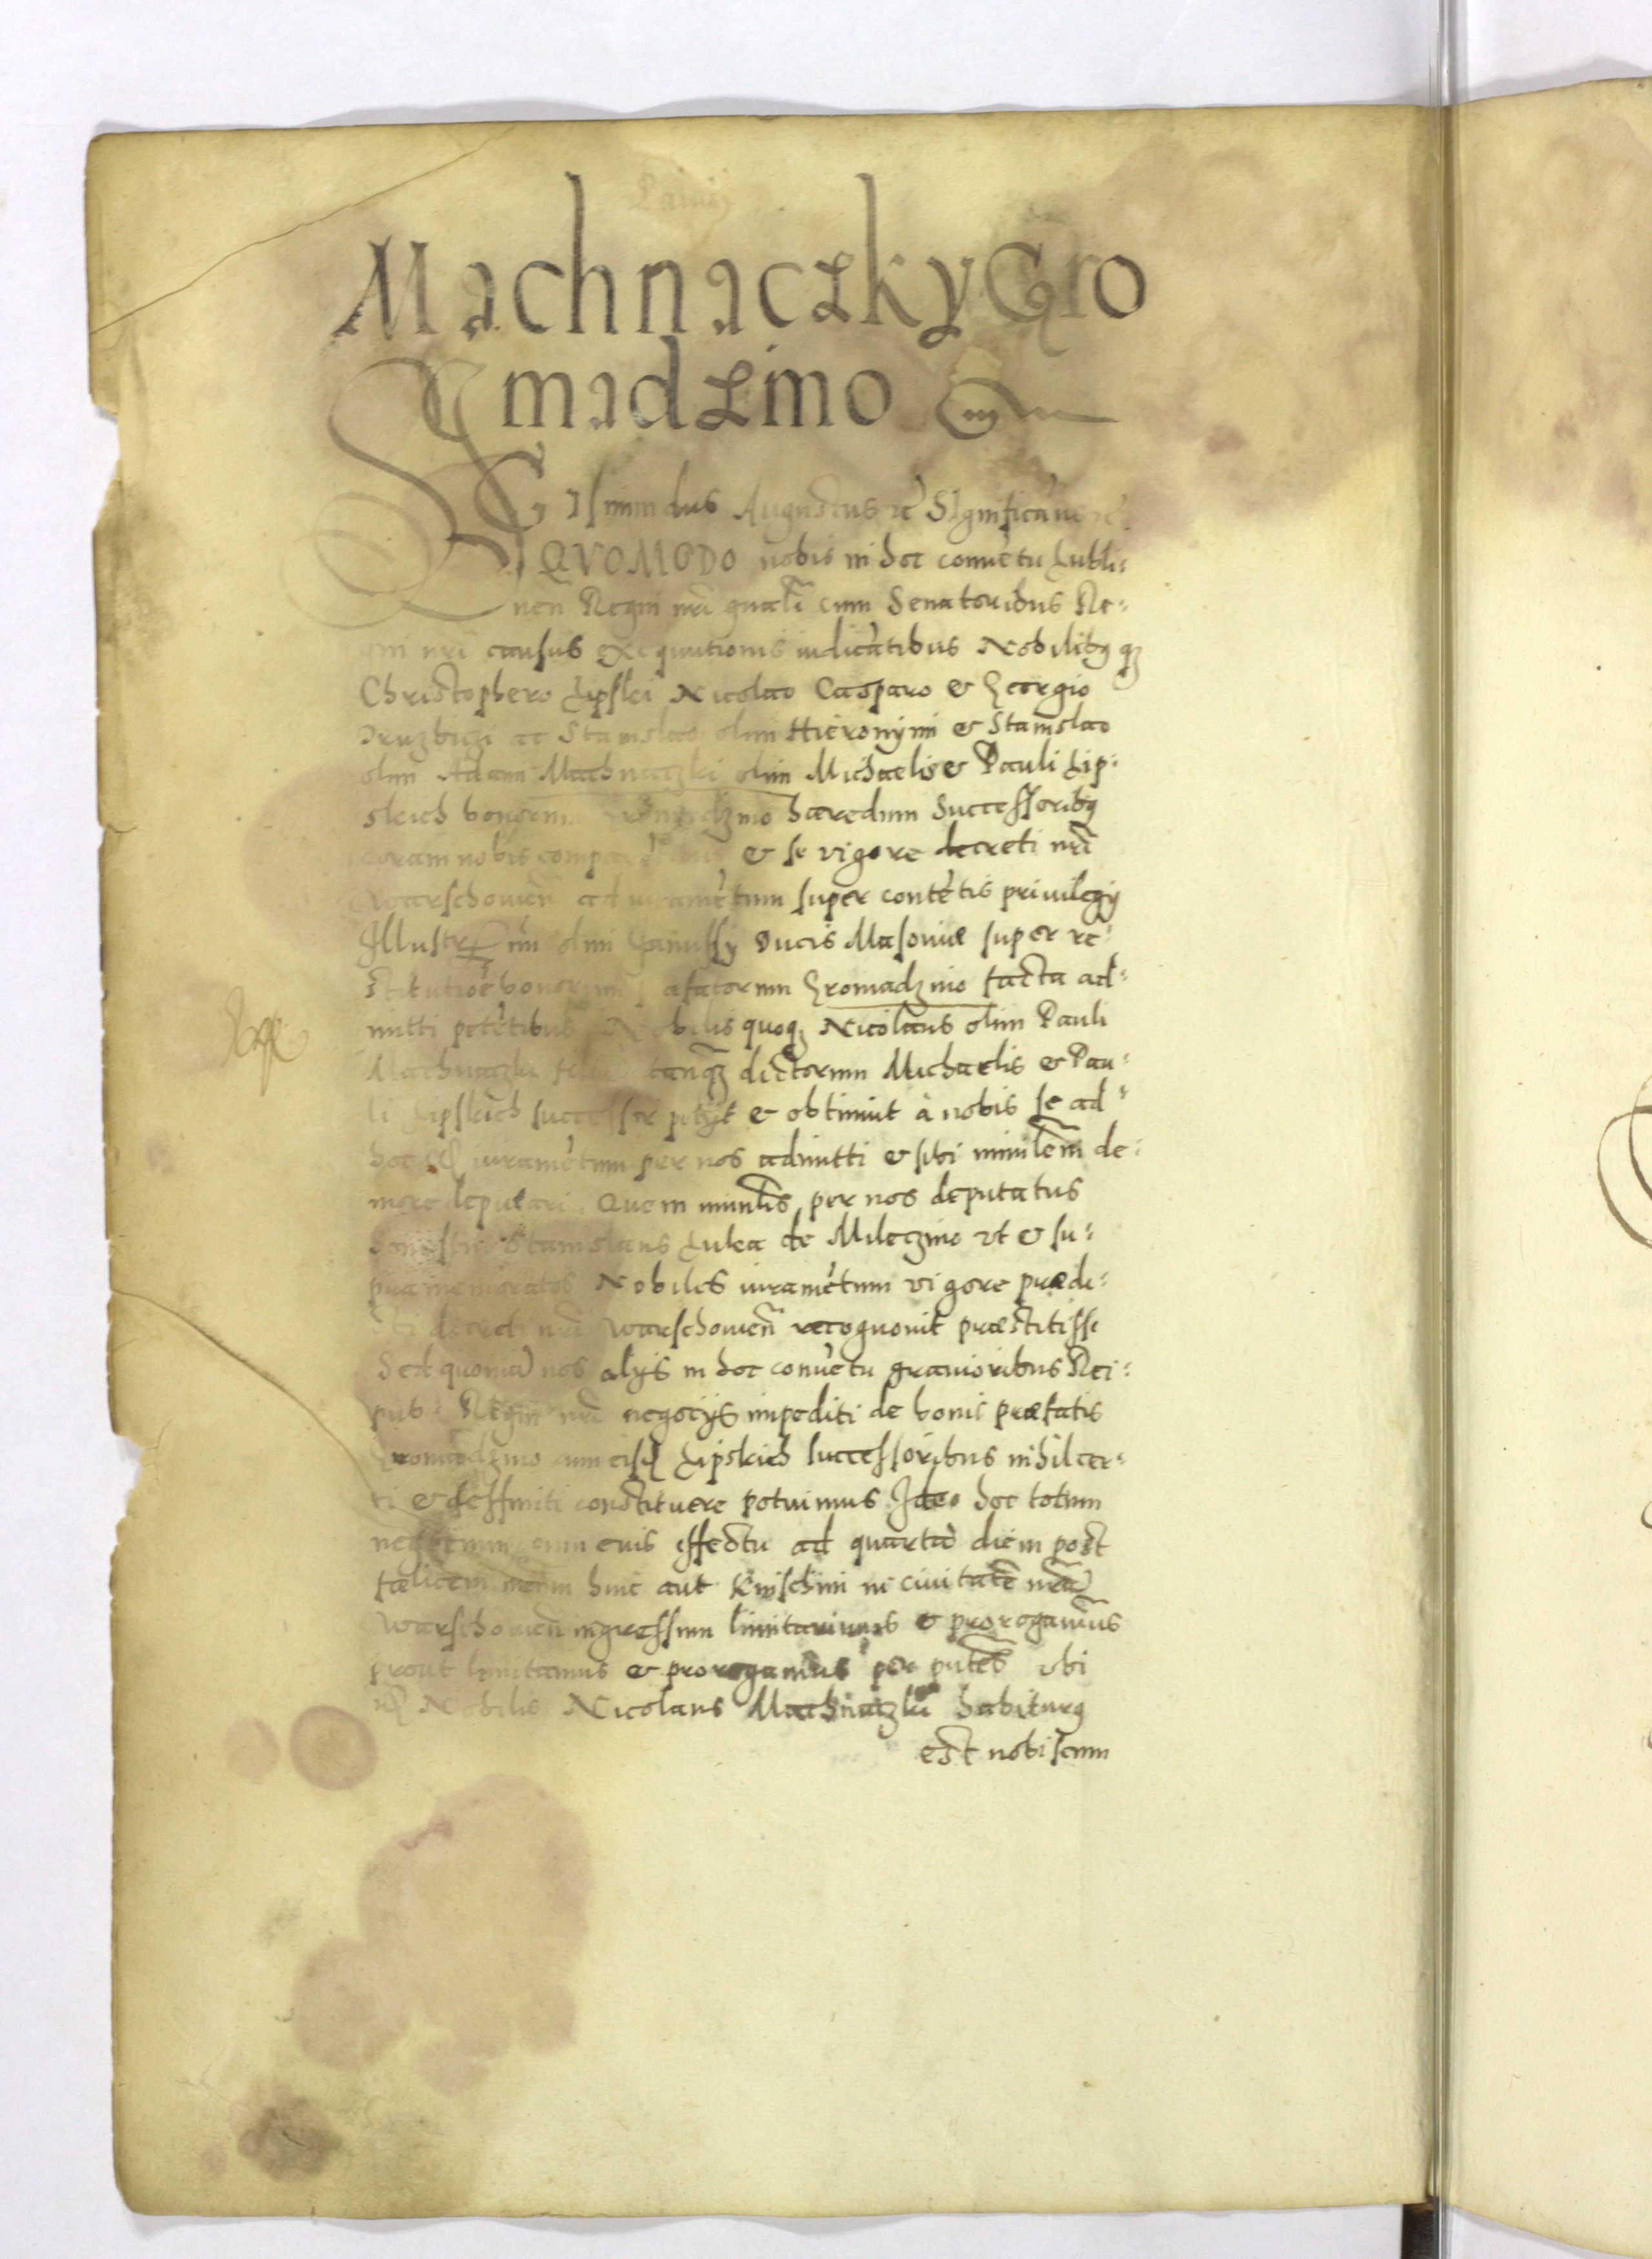 Machnaczky Gro
madzino
Sigismundus Augustus etc Significam
QVOMODO nobis in hoc convētu Lubli:
nen̄ Regni nr̄i gnāli cum Senatoribus Re:
gni nr̄i causas exequutionis iudicātibus Nobilibq; q;
Christophero Lipski Nicolao Casparo & Georgio
Druzbiczi ac Stanislao olim Hieronymi & Stanislao
olim Adami Machnaczki olim Michaelis & Pauli Lip:
skich bonorum Gromadzino hæredum Successoribq;
coram nobis comparētibus & se vigore decreti nr̄i
Warschovien̄ ad iuramētum super contētis privilegij
Illustr olim Janussij Ducis Masoviæ super re:
stitutioē bonorum afatorum Gromadzino facta ad:
mitti petētibus Nobilis quoq; Nicolaus olim Pauli
Machnaczki tanq̄ dictorum Michaelis & Pau:
li Lipskich successor petijt & obtinuit à nobis se ad
hoc iuramētum per nos admitti & sibi minilēm de:
more deputari. Quem minilīs per nos deputatus
Stanislaus Lulea de Mileczino ut & su:
pramemoratos Nobiles iuramētum vigore prædi:
cti decreti nr̄i Warschovien̄ recognovit præstitisse
Sed quoniā nos alijs in hoc convētu gravioribus Rei:
pub: Regni nr̄i negocijs impediti de bonis præfatis
Gromadzino cum eisd Lipskich successoribus nihil cer:
ti & deffiniti constituere potuimus Ideo hoc totum
negocium cum euis effectu ad quartā diem post
fælicem hinc aut Knischini in civitatē nr̄ā
Warschovien̄ ingressum limitavimus & prorogavim̄us
prout limitamus & prorogamus per pn̄tēs ubi
Nobilis Nicolaus Machnaczki habiturq;
est nobiscum